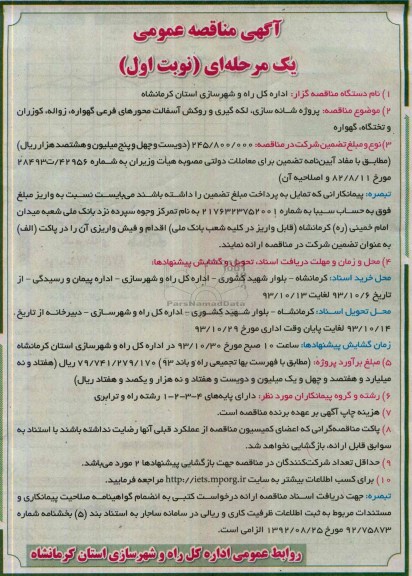 آگهی مناقصه عمومی
یک مرحله‌ای (نوبت اول)
۱) نام دستگاه مناقصه گزار: اداره کل راه و شهرسازی استان کرمانشاه
۲) موضوع مناقصه: پروژه شانه سازی، لکه گیری و روکش آسفالت محورهای فرعی گهواره، زواله، کوزران
و تختگاه، گهواره
۳) نوع و مبلغ تضمین شرکت در مناقصه: ۲۴۵/۸۰۰/۰۰۰ (دویست و چهل و پنج میلیون و هشتصد هزار ریال)
(مطابق با مفاد آیین‌نامه تضمین برای معاملات دولتی مصوبه هیأت وزیران به شماره ۴۲۹۵۶/ت۲۸۴۹۳
مورخ ۸۲/۸/۱۱ و اصلاحیه آن)
تبصره: پیمانکارانی که تمایل به پرداخت مبلغ تضمین را داشته باشند می‌بایست نسبت به واریز مبلغ
فوق به حساب سیبا به شماره ۲۱۷۶۳۲۳۷۵۲۰۰۱ به نام تمرکز وجوه سپرده نزد بانک ملی شعبه میدان
امام خمینی (ره) کرمانشاه (قابل واریز در کلیه شعب بانک ملی) اقدام و فیش واریزی آن را در پاکت (الف)
به عنوان تضمین شرکت در مناقصه ارائه نمایند.
۴) محل و زمان و مهلت دریافت اسناد، تحویل و گشایش پیشنهادها:
محل خرید اسناد: کرمانشاه - بلوار شهید کشوری - اداره کل راه و شهرسازی - اداره پیمان و رسیدگی - از
تاریخ ۹۳/۱۰/۶ لغایت ۹۳/۱۰/۱۳
محل تحویل اسناد: کرمانشاه - بلوار شهید کشوری - اداره کل راه و شهرسازی - دبیرخانه - از تاریخ
۹۳/۱۰/۱۴ لغایت پایان وقت اداری مورخ ۹۳/۱۰/۲۹
زمان گشایش پیشنهادها: ساعت ۱۰ صبح مورخ ۹۳/۱۰/۳۰ در اداره کل راه و شهرسازی استان کرمانشاه
۵) مبلغ برآورد پروژه: (مطابق با فهرست بها تجمیعی راه و باند ۹۳) ۷۹/۷۴۱/۲۷۹/۱۷۰ ریال (هفتاد و نه
میلیارد و هفتصد و چهل و یک میلیون و دویست و هفتاد و نه هزار و یکصد و هفتاد ریال)
۶) رشته و گروه پیمانکاران مورد نظر: دارای پایه‌های ۴-۳-۲-۱ رشته راه و ترابری
۷) هزینه چاپ آگهی بر عهده برنده مناقصه است.
۸) پاکت مناقصه‌گرانی که اعضای کمیسیون مناقصه از عملکرد قبلی آنها رضایت نداشته باشند با استناد به
سوابق قابل ارائه، بازگشایی نخواهد شد.
۹) حداقل تعداد شرکت‌کنندگان در مناقصه جهت بازگشایی پیشنهادها ۲ مورد می‌باشد.
۱۰) برای کسب اطلاعات بیشتر به سایت http://iets.mporg.ir مراجعه فرمایید.
تبصره: جهت دریافت اسناد مناقصه ارائه درخواست کتبی به انضمام گواهینامه صلاحیت پیمانکاری و
مستندات مربوط به ثبت اطلاعات ظرفیت کاری و ریالی در سامانه ساجار به استناد بند (۵) بخشنامه شماره
۹۲/۷۵۸۷۳ مورخ ۱۳۹۲/۰۸/۲۵ الزامی است.
روابط عمومی اداره کل راه و شهرسازی استان کرمانشاه
ParsNamadData